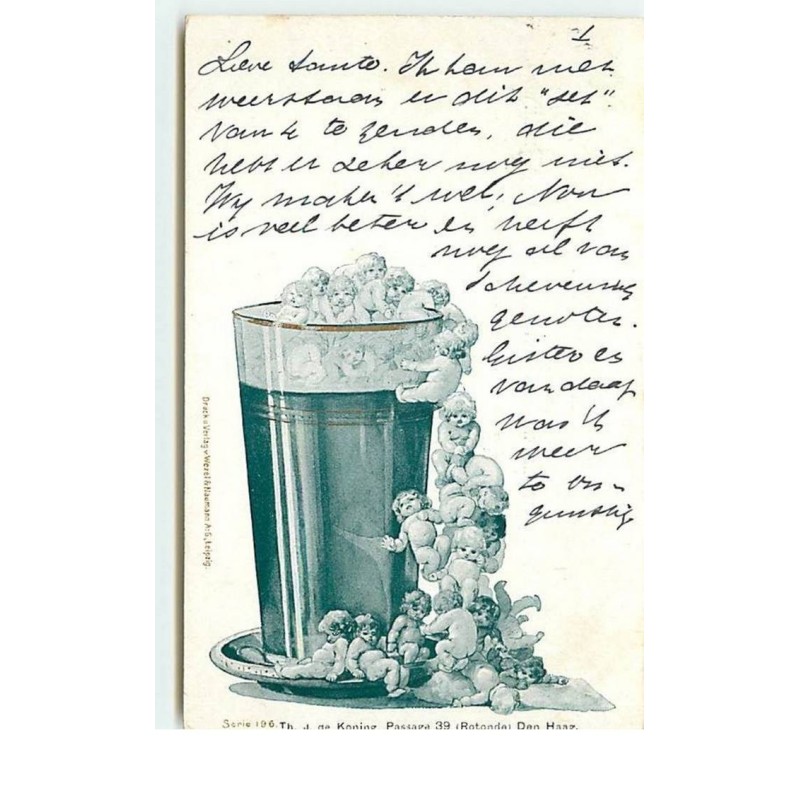 1
Lieve tante. Ik kan niet
weerstaan er dit "set"
van 4 te zenden, die
hebt er zeker nog niet.
Wij maken 't wel; Non
is veel beter en heeft
nog al van
Schevening
genoten.
Gister en
vandaag
was 't
weer
te on-
gunstig
Druck u. Verlag v. Wezel & Naumann A.-G., Leipzig.
Serie 196. Th. J. de Koning, Passage 39 (Rotonde) Den Haag.